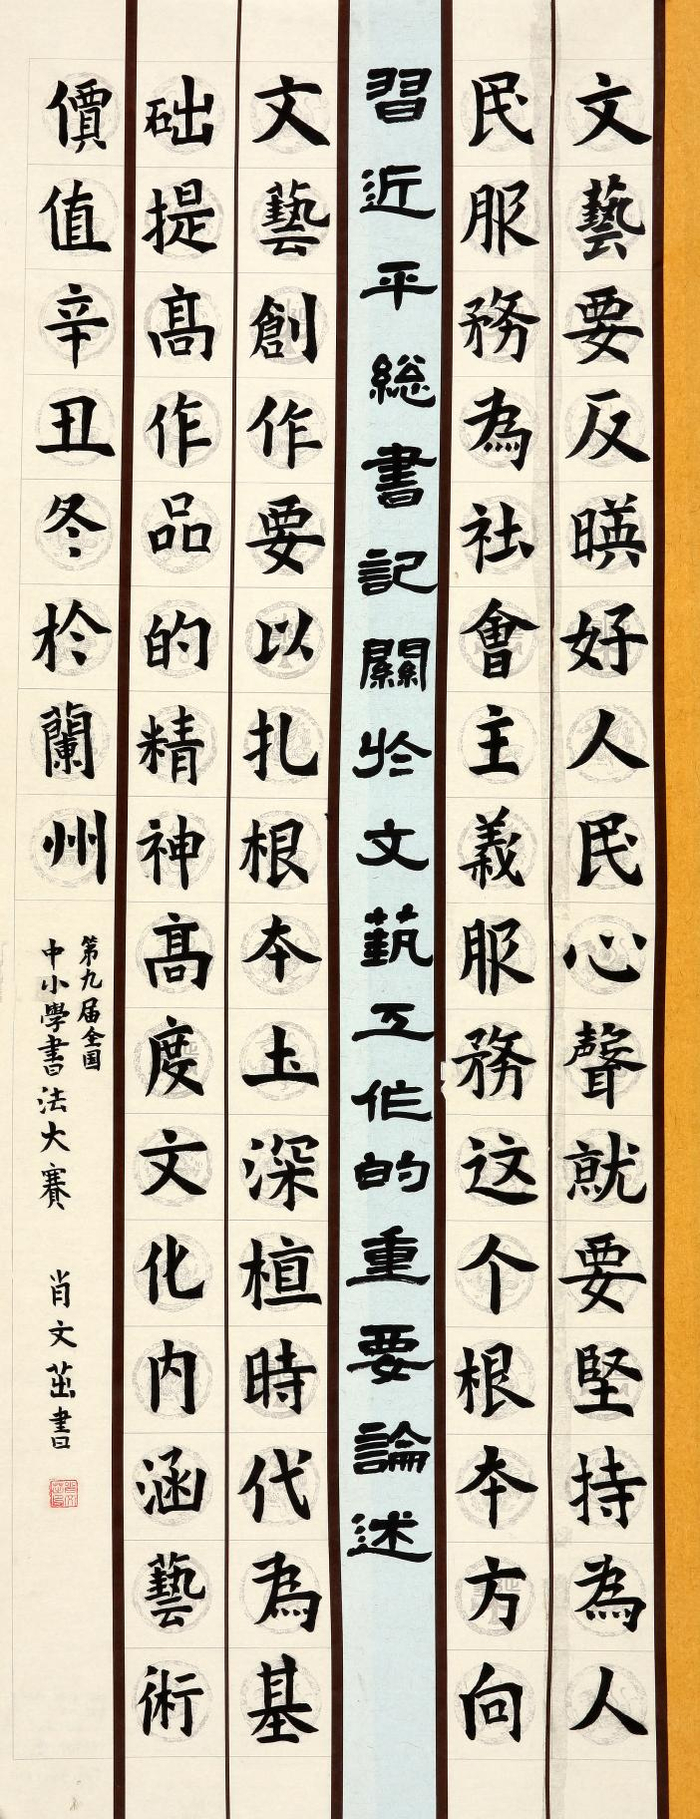 文藝要反暎好人民心聲就要堅持為人
民服務為社會主義服務这个根本方向
習近平総書記關於文藝工作的重要論述
文藝創作要以扎根本土深植時代為基
础提高作品的精神高度文化内涵藝術
價值辛丑冬於蘭州
第九届全国
中小學書法大賽
肖文茁書